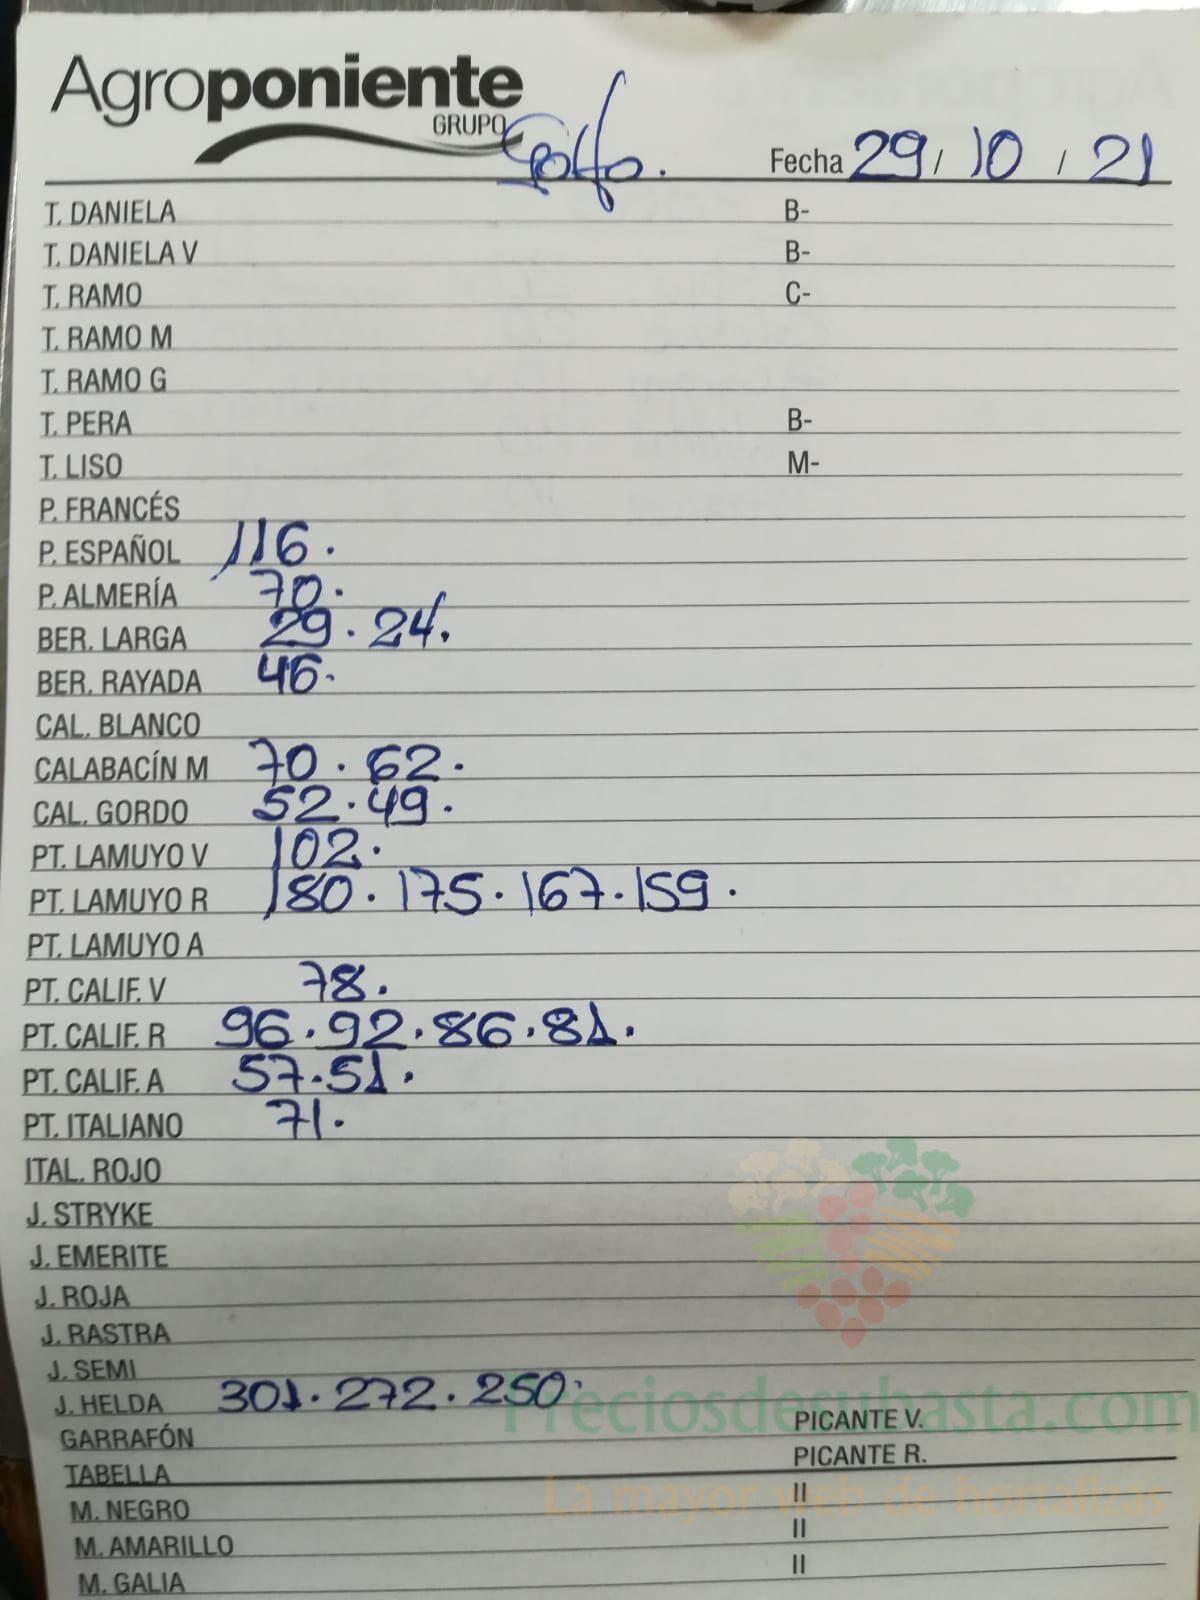 Agroponiente
GRUPO
Golfo.
Fecha 29 / 10 / 21
T. DANIELA B-
T. DANIELA V B-
T. RAMO C-
T. RAMO M
T. RAMO G
T. PERA B-
T. LISO M-
P. FRANCÉS
P. ESPAÑOL 116.
P. ALMERÍA 70.
BER. LARGA 29. 24.
BER. RAYADA 46.
CAL. BLANCO
CALABACÍN M 70. 62.
CAL. GORDO 52. 49.
PT. LAMUYO V 102.
PT. LAMUYO R 180. 175. 167. 159.
PT. LAMUYO A
PT. CALIF. V 78.
PT. CALIF. R 96. 92. 86. 81.
PT. CALIF. A 57. 51.
PT. ITALIANO 71.
ITAL. ROJO
J. STRYKE
J. EMERITE
J. ROJA
J. RASTRA
J. SEMI
J. HELDA 301. 272. 250.
Preciosdesubasta.com
GARRAFÓN PICANTE V.
TABELLA PICANTE R.
La mayor web de hortalizas
M. NEGRO II
M. AMARILLO II
M. GALIA II